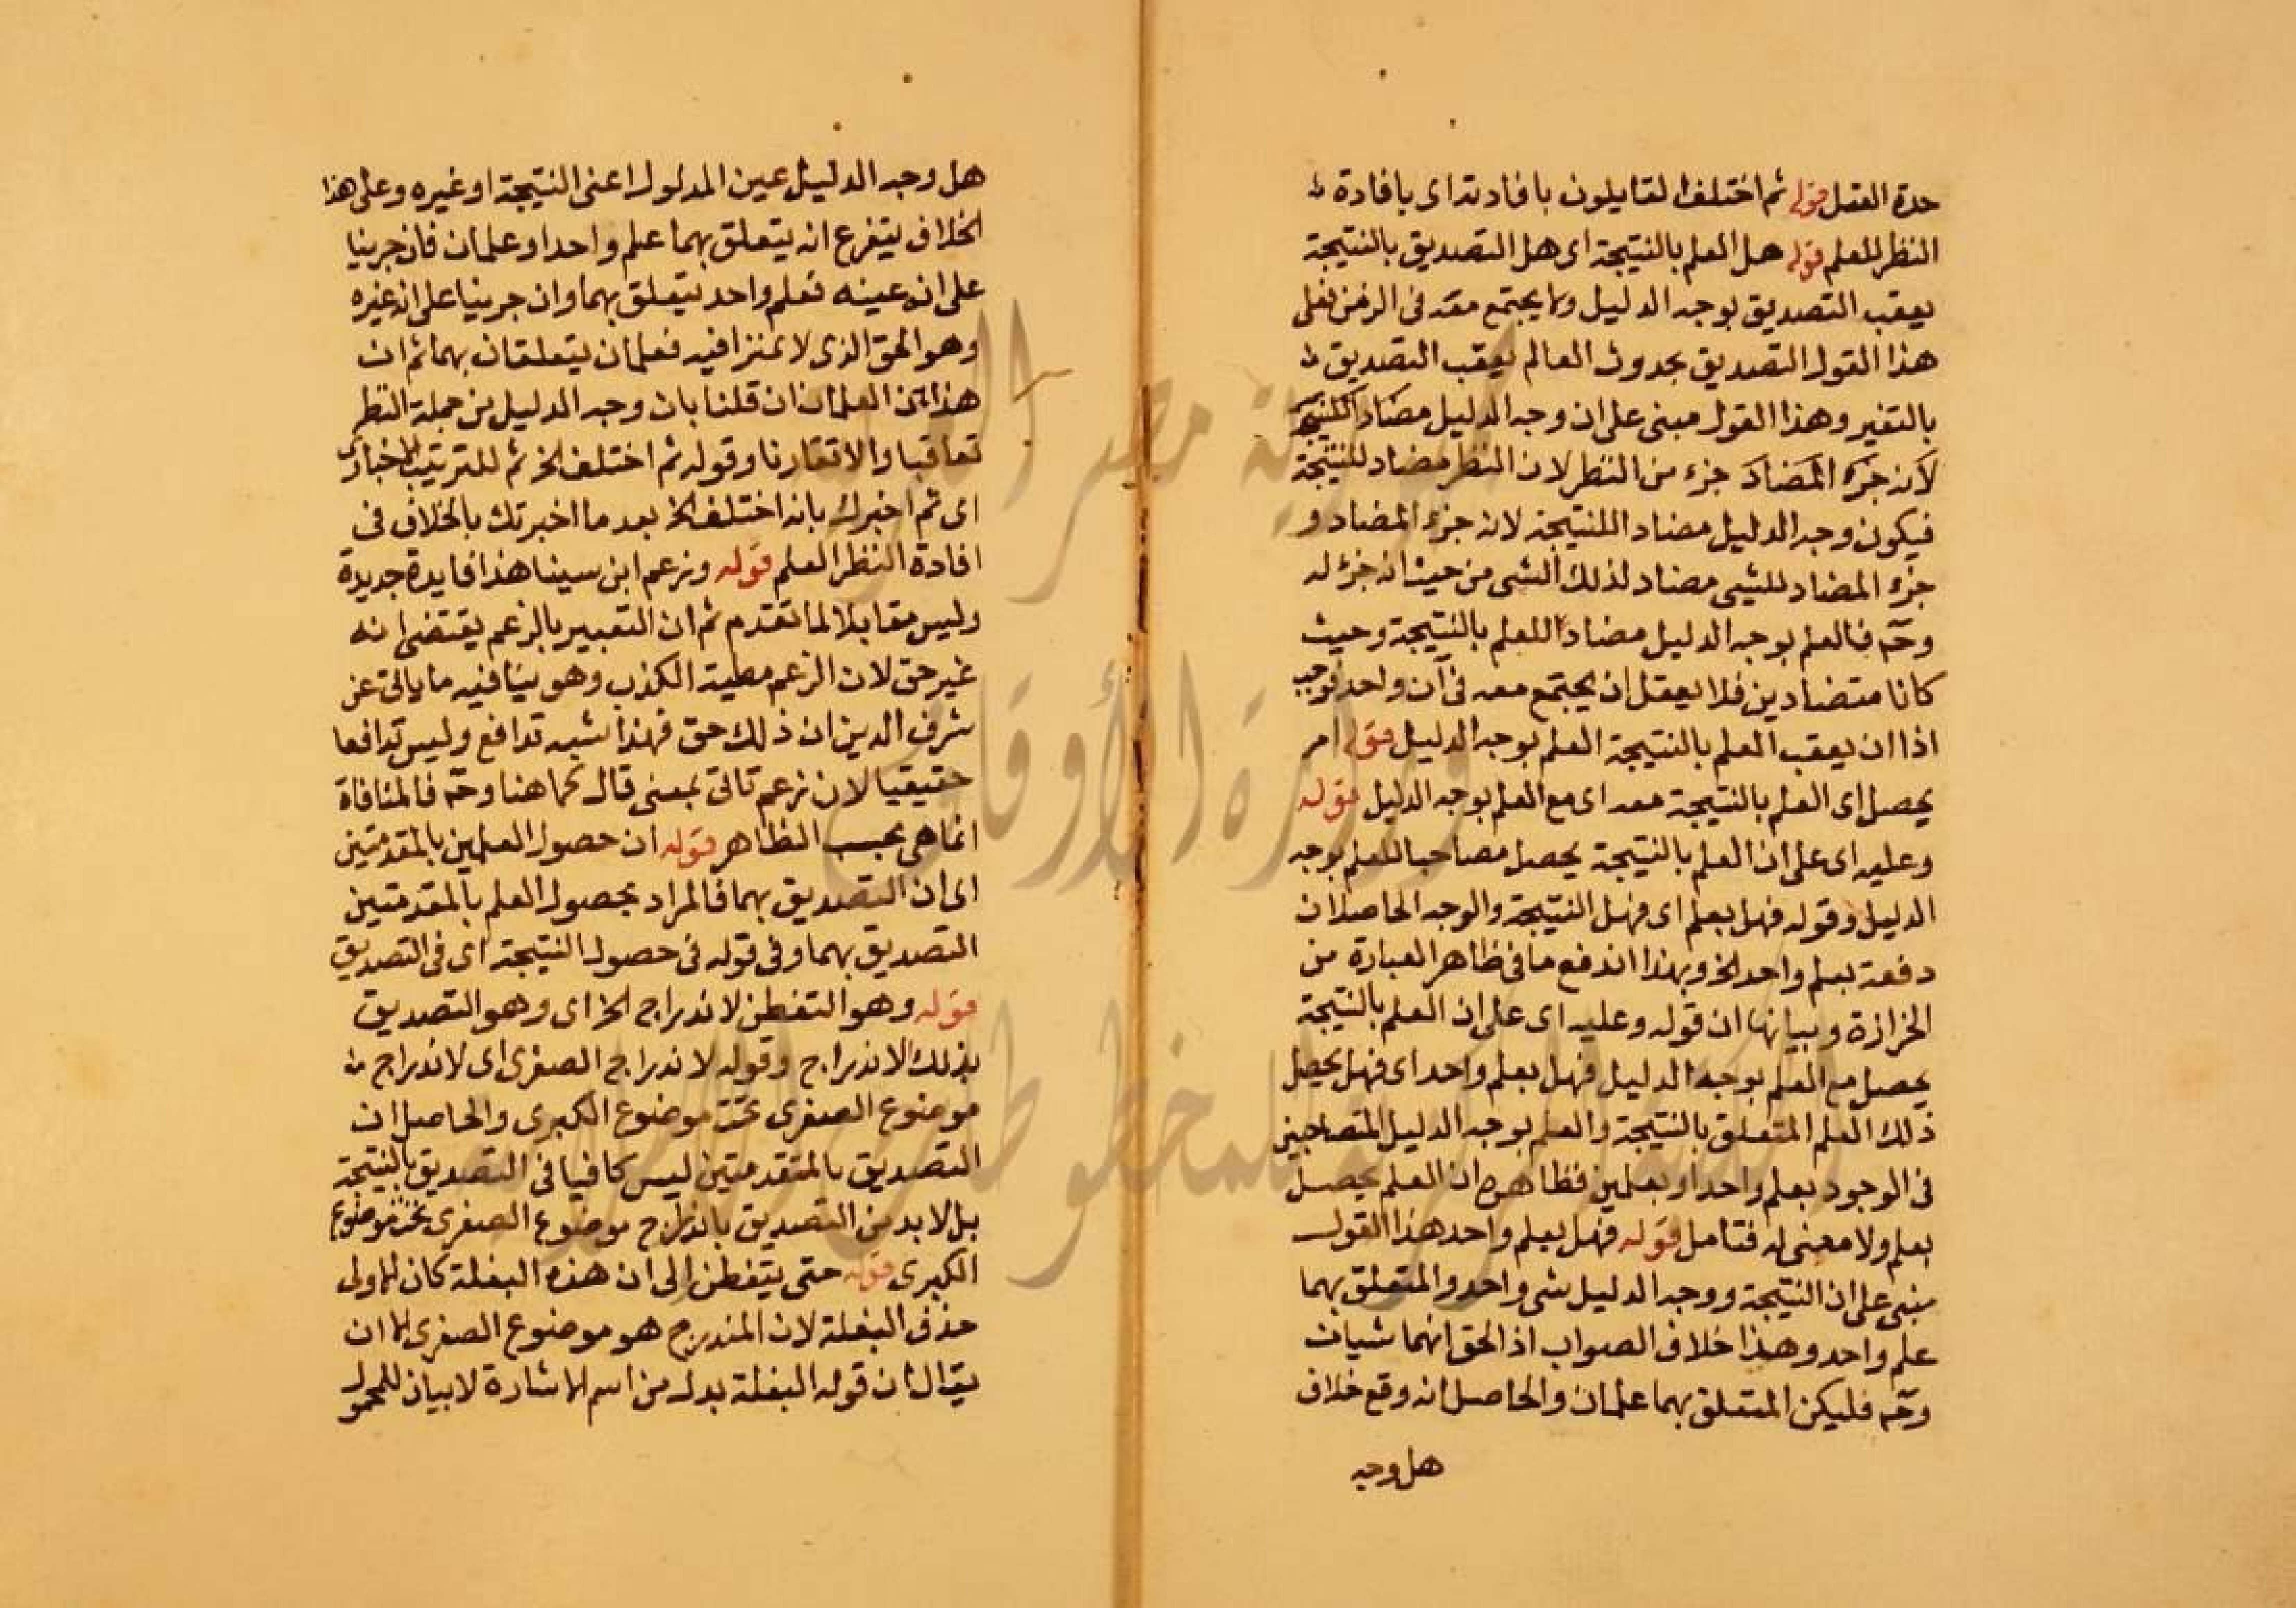 حدة العقل قوله ثم اختلف القايلون بافادته اى بافادة
النظر للعلم قوله هل العلم بالنتيجة اى هل التصديق بالنتيجة
يعقب التصديق بوجه الدليل ولا يجتمع معه فى الزمن فعلى
هذا القول التصديق بحدوث العالم يعقب التصديق
بالتغير وهذا القول مبنى على ان وجه الدليل مضاد للنتيجة
لانه جزء المضاد جزء من النظر لان النظر مضاد للنتيجة
فيكون وجه الدليل مضادا للنتيجة لانه جزء المضاد و
جزء المضاد للشيى مضاد لذلك الشى من حيث انه جزء له
وحـ فالعلم بوجه الدليل مضادا للعلم بالنتيجة وحيث
كانا متضادين فلا يعقل ان يجتمع معه فى آن واحد فوجب
اذا ان يعقب العلم بالنتيجة العلم بوجه الدليل قوله امر
يحصل اى العلم بالنتيجة معه اى مع العلم بوجه الدليل قوله
وعليه اى على ان العلم بالنتيجة يحصل مصاحبا للعلم بوجه
الدليل وقوله فهل بعلم اى فهل النتيجة والوجه الحاصلان
دفعة بعلم واحد الخ وبهذا اندفع ما فى ظاهر العبارة من
الحزازة وبيانها ان قوله وعليه اى على ان العلم بالنتيجة
يحصل مع العلم بوجه الدليل فهل بعلم واحد اى فهل يحصل
ذلك العلم المتعلق بالنتيجة والعلم بوجه الدليل المتصاحبين
فى الوجود بعلم واحد او بعلمين فظاهره ان العلم يحصل
بعلم ولا معنى له فتامل قوله فهل بعلم واحد هذا القول
مبنى على ان النتيجة ووجه الدليل شى واحد والمتعلق بهما
علم واحد وهذا خلاف الصواب اذ الحق انهما شيان
وحـ فليكن المتعلق بهما علمان والحاصل انه وقع خلاف
هل وجه
هل وجه الدليل عين المدلول اعنى النتيجة او غيره وعلى هذا
الخلاف يتفرع انه يتعلق بهما علم واحد او علمان فان جرينا
على انه عينه فعلم واحد يتعلق بهما وان جرينا على انه غيره
وهو الحق الذى لا نزاع فيه فعلمان يتعلقان بهما ثم ان
هذان العلمان ان قلنا بان وجه الدليل من جملة النظر
تعاقبا والا تقارنا وقوله ثم اختلف الخ ثم للترتيب الاخبارى
اى ثم اخبرك بانه اختلف الخ بعد ما اخبرتك بالخلاف فى
افادة النظر العلم قوله وزعم ابن سينا هذا فايدة جديدة
وليس مقابلا لما تقدم ثم ان التعبير بالزعم يقتضى انه
غير حق لان الزعم مطية الكذب وهو ينافيه ما ياتى عن
شرف الدين ان ذلك حق فهذا شبه تدافع وليس تدافعا
حقيقيا لان زعم تاتى بمعنى قال كما هنا وحـ فالمنافاة
انما هى بحسب الظاهر قوله ان حصول العلمين بالمقدمتين
اى ان التصديق بهما فالمراد بحصول العلم بالمقدمتين
التصديق بهما وفى قوله فى حصول النتيجة اى فى التصديق
قوله وهو التفطن لاندراج الخ اى وهو التصديق
بذلك الاندراج وقوله لاندراج الصغرى اى لاندراج
موضوع الصغرى تحت موضوع الكبرى والحاصل ان
التصديق بالمقدمتين ليس كافيا فى التصديق بالنتيجة
بل لا بد من التصديق باندراج موضوع الصغرى تحت موضوع
الكبرى قوله حتى يتفطن الى ان هذه البغلة كان الاولى
حذف البغلة لان المندرج هو موضوع الصغرى الا ان
يقال ان قوله البغلة بدل من اسم الاشارة لا بيان للمحمول